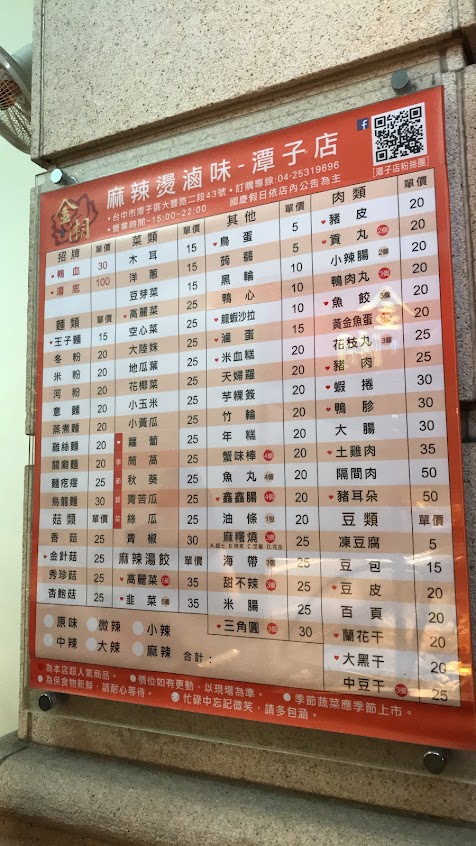 金湖
麻辣燙滷味-潭子店
•台中市潭子區大豐路二段43號•訂購專線:04-25319696
•營業時間~15:00~22:00 國慶假日依店內公告為主
潭子店粉絲團
招牌 單價
♥鴨血 30
♥湯底 100
麵類 單價
♥王子麵 15
冬粉 20
米粉 20
河粉 20
意麵 20
蒸煮麵 20
雞絲麵 20
關廟麵 20
麵疙瘩 25
烏龍麵 30
菇類 單價
香菇 25
♥金針菇 25
秀珍菇 25
杏鮑菇 25
菜類 單價
木耳 15
洋蔥 15
豆芽菜 15
♥高麗菜 25
空心菜 25
大陸妹 25
地瓜葉 25
花椰菜 25
小玉米 25
小黃瓜 25
♥季節蔬菜
蘿蔔 25
茼蒿 25
秋葵 25
青苦瓜 25
絲瓜 25
青椒 30
麻辣湯餃 單價
♥高麗菜 35
♥韭菜 35
其他 單價
♥鳥蛋 5
蒟蒻 5
黑輪 10
鴨心 10
♥龍蝦沙拉 10
♥滷蛋 15
♥米血糕 20
天婦羅 20
芋粿簽 20
竹輪 20
年糕 20
蟹味棒 4個 20
魚丸 4個 20
♥鑫鑫腸 4個 20
油條 1包 20
麻糬燒 3個 20
海帶 3個 25
甜不辣 3個 25
米腸 25
♥三角圓 3個 30
肉類 單價
♥豬皮 20
♥貢丸 2個 20
小辣腸 2個 20
鴨肉丸 3個 20
♥魚餃 3個 20
黃金魚蛋 20
花枝丸 3個 25
♥豬肉 25
♥蝦捲 30
♥鴨胗 30
大腸 30
♥土雞肉 35
隔間肉 50
♥豬耳朵 50
豆類 單價
凍豆腐 5
豆包 15
♥豆皮 20
百頁 20
♥蘭花干 20
♥大黑干 20
中豆干 3個 25
原味 微辣 小辣
中辣 大辣 麻辣 合計：
♥為本店超人氣商品。 ●價位如有更動，以現場為準。 ●季節蔬菜應季節上市。
●為保食物新鮮，請耐心等待。 忙碌中忘記微笑，請多包涵。